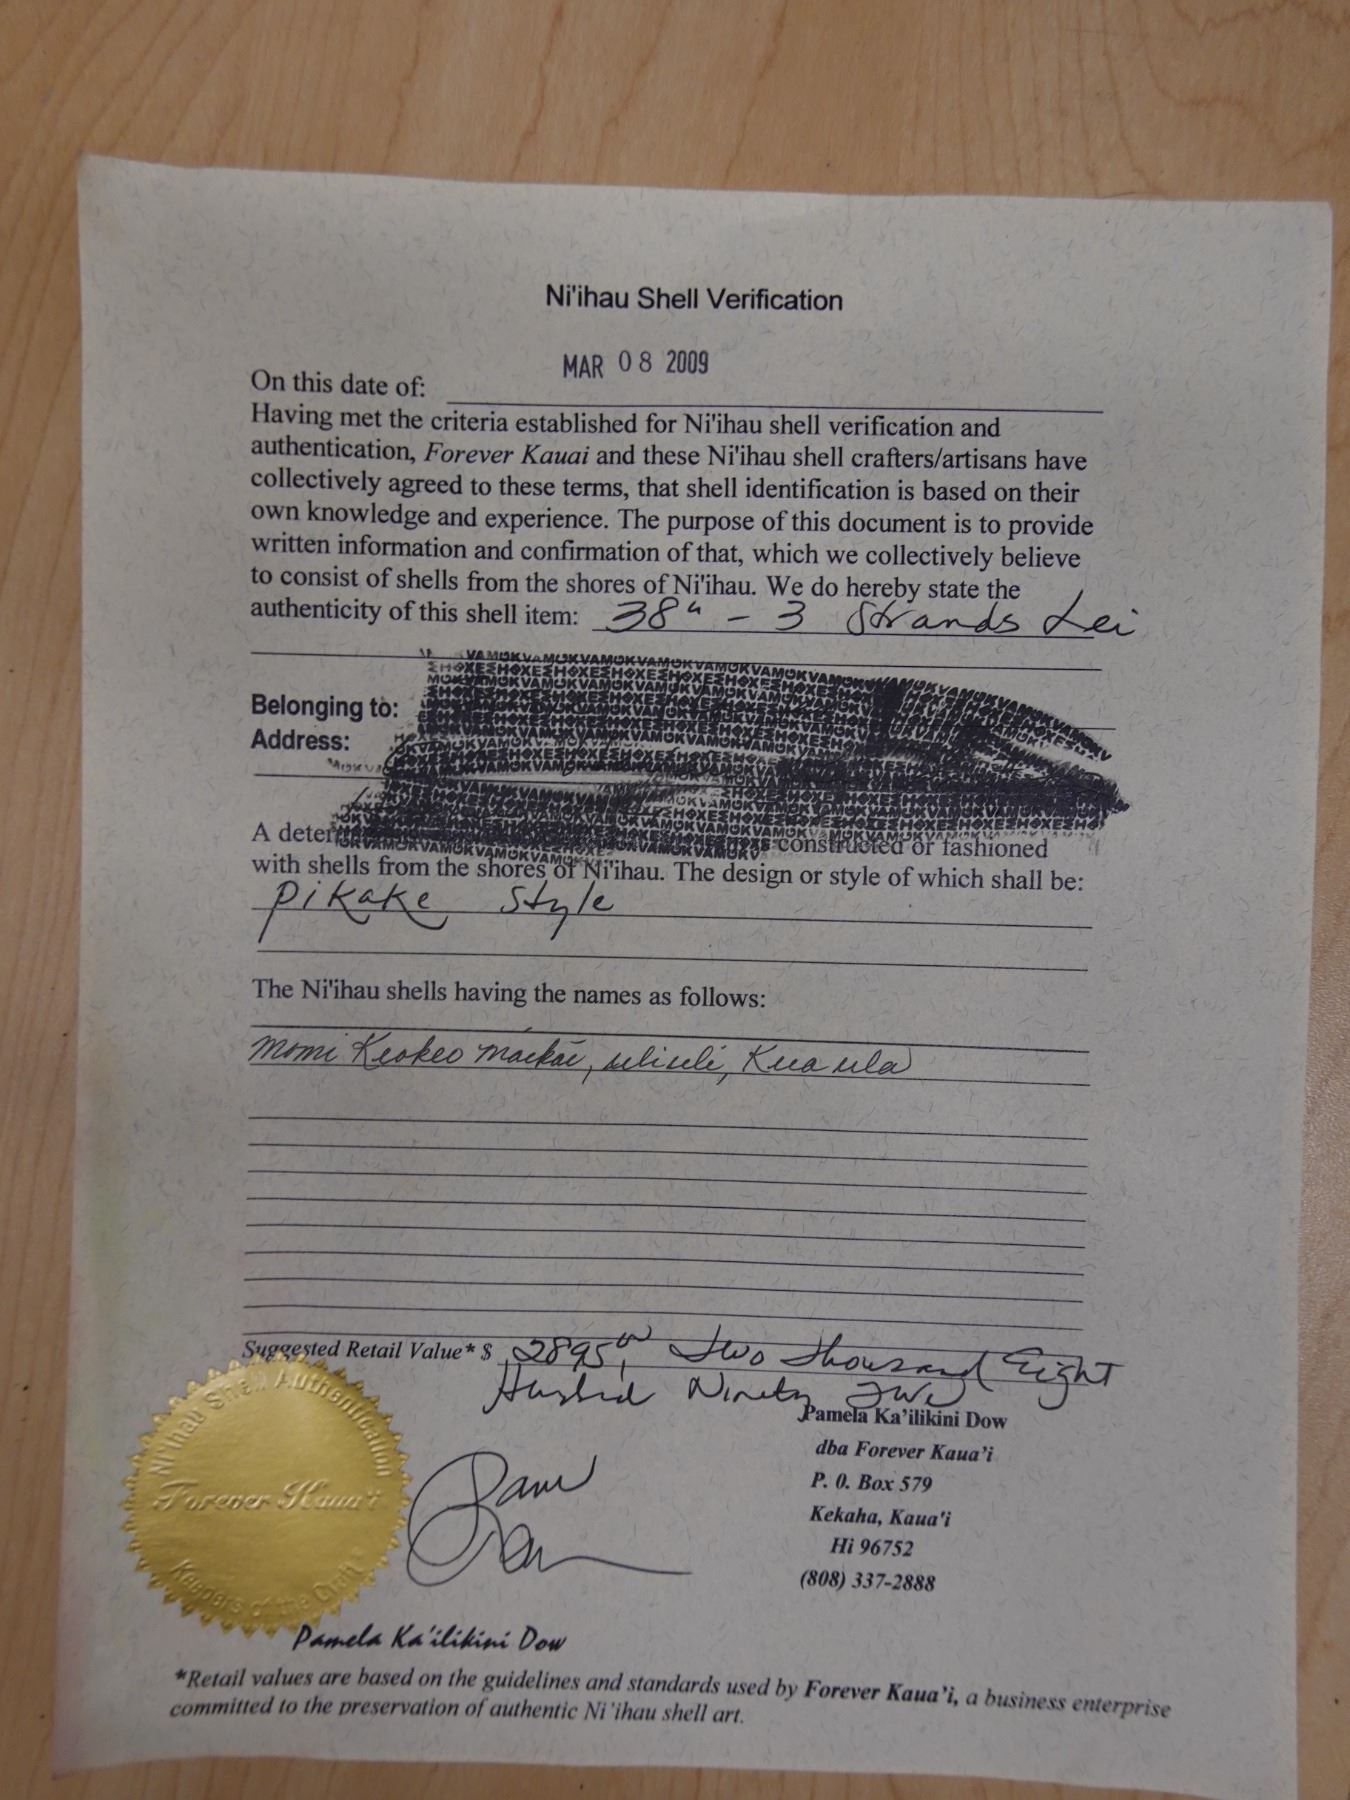 Ni'ihau Shell Verification
MAR 08 2009
On this date of:
Having met the criteria established for Ni'ihau shell verification and
authentication, Forever Kauai and these Ni'ihau shell crafters/artisans have
collectively agreed to these terms, that shell identification is based on their
own knowledge and experience. The purpose of this document is to provide
written information and confirmation of that, which we collectively believe
to consist of shells from the shores of Ni'ihau. We do hereby state the
authenticity of this shell item: 38" - 3 Strands Lei
Belonging to:
Address:
A deter constructed or fashioned
with shells from the shores of Ni'ihau. The design or style of which shall be:
Pikake Style
The Ni'ihau shells having the names as follows:
Momi Keokeo maikai, uliuli, Kua ula
Suggested Retail Value* $ 2895.00 Two Thousand Eight
Ninety
Pamela Ka'ilikini Dow
dba Forever Kaua'i
P. 0. Box 579
Kekaha, Kaua'i
Hi 96752
(808) 337-2888
Ni'ihau Shell Authentication
Forever Kaua'i
Keepers of the Craft
Pam Dow
Pamela Ka'ilikini Dow
*Retail values are based on the guidelines and standards used by Forever Kaua'i, a business enterprise
committed to the preservation of authentic Ni'ihau shell art.